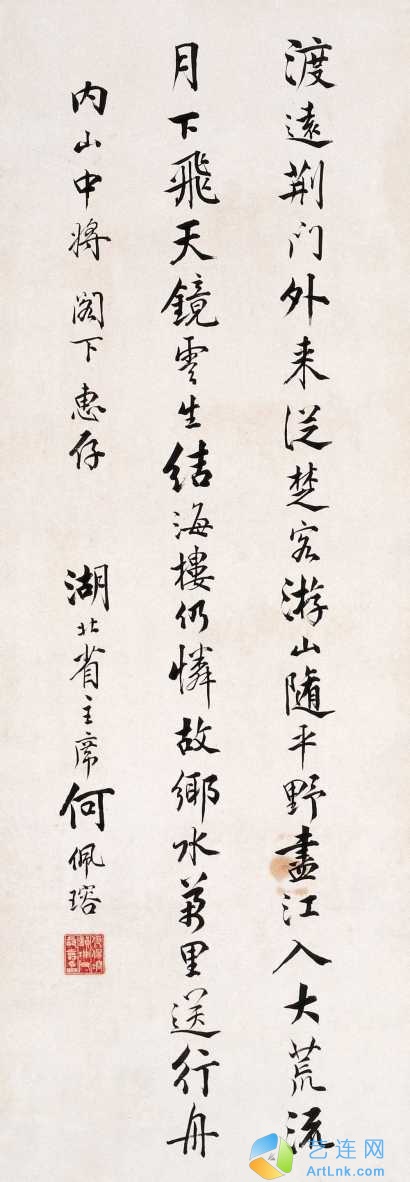 渡遠荆门外来从楚客游山随平野盡江入大荒流
月下飛天鏡雲生结海樓仍憐故鄉水萬里送行舟
内山中將 阁下惠存
湖北省主席何佩瑢
艺连网
ArtLnk.com